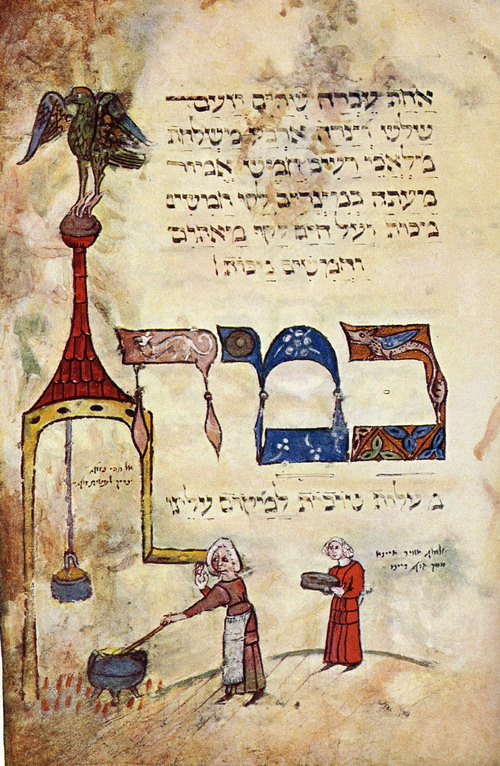 אחת עברה שתים וזעם
שלש וצרה ארבע משלחת
מלאכי רעים חמש אמור
מעתה במצרים לקו חמישים
מכות ועל הים לקו מאתים
וחמשים מכות
כמה
מעלות טובות למקום עלינו